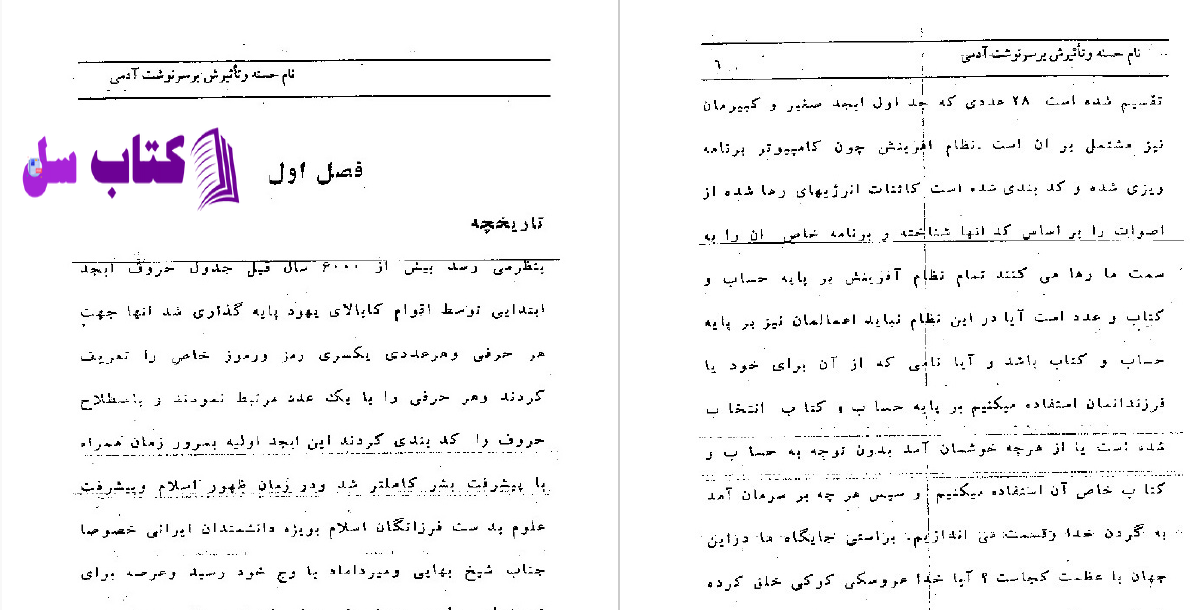 نام حسنه وتأثیرش برسرنوشت آدمی
۶
تقسیم شده است ۲۸ عددی که جد اول ابجد صغیر و کبیرمان
نیز مشتمل بر ان است .نظام افرینش چون کامپیوتر برنامه
ویزی شده و کد بندی شده است کائنات انرژیهای رها شده از
اصوات را بر اساس کد انها شناخته و برنامه خاص ان را به
سمت ما رها می کنند تمام نظام آفرینش بر پایه حساب و
کتاب و عدد است آیا در این نظام نباید اعمالمان نیز بر پایه
حساب و کتاب باشد و آیا نامی که از آن برای خود یا
فرزندانمان استفاده میکنیم بر پایه حساب و کتاب انتخاب
شده است یا از هرچه خوشمان آمد بدون توجه به حساب و
کتاب خاص آن استفاده میکنیم و سپس هر چه بر سرمان آمد
به گردن خدا وقسمت می اندازیم. براستی جایگاه ما دراین
جهان با عظمت کجاست ؟ آیا خدا عروسکی کوکی خلق کرده
نام حسنه وتأثیرش برسرنوشت آدمی
کتاب سل
فصل اول
تاریخچه
بنظرمی رسد بیش از ۶۰۰۰ سال قبل جدول حروف ابجد
ابتدایی توسط اقوام کابالای یهود پایه گذاری شد انها جهت
هر حرفی وهرعددی یکسری رمز ورموز خاص را تعریف
کردند وهر حرفی را با یک عدد مرتبط نمودند و باصطلاح
حروف را کد بندی کردند این ابجد اولیه بمرور زمان همراه
با پیشرفت بشر کاملتر شد ودر زمان ظهور اسلام وپیشرفت
علوم بد ست فرزانگان اسلام بویژه دانشمندان ایرانی خصوصا
جناب شیخ بهایی ومیرداماد با وج خود رسید وعرصه برای